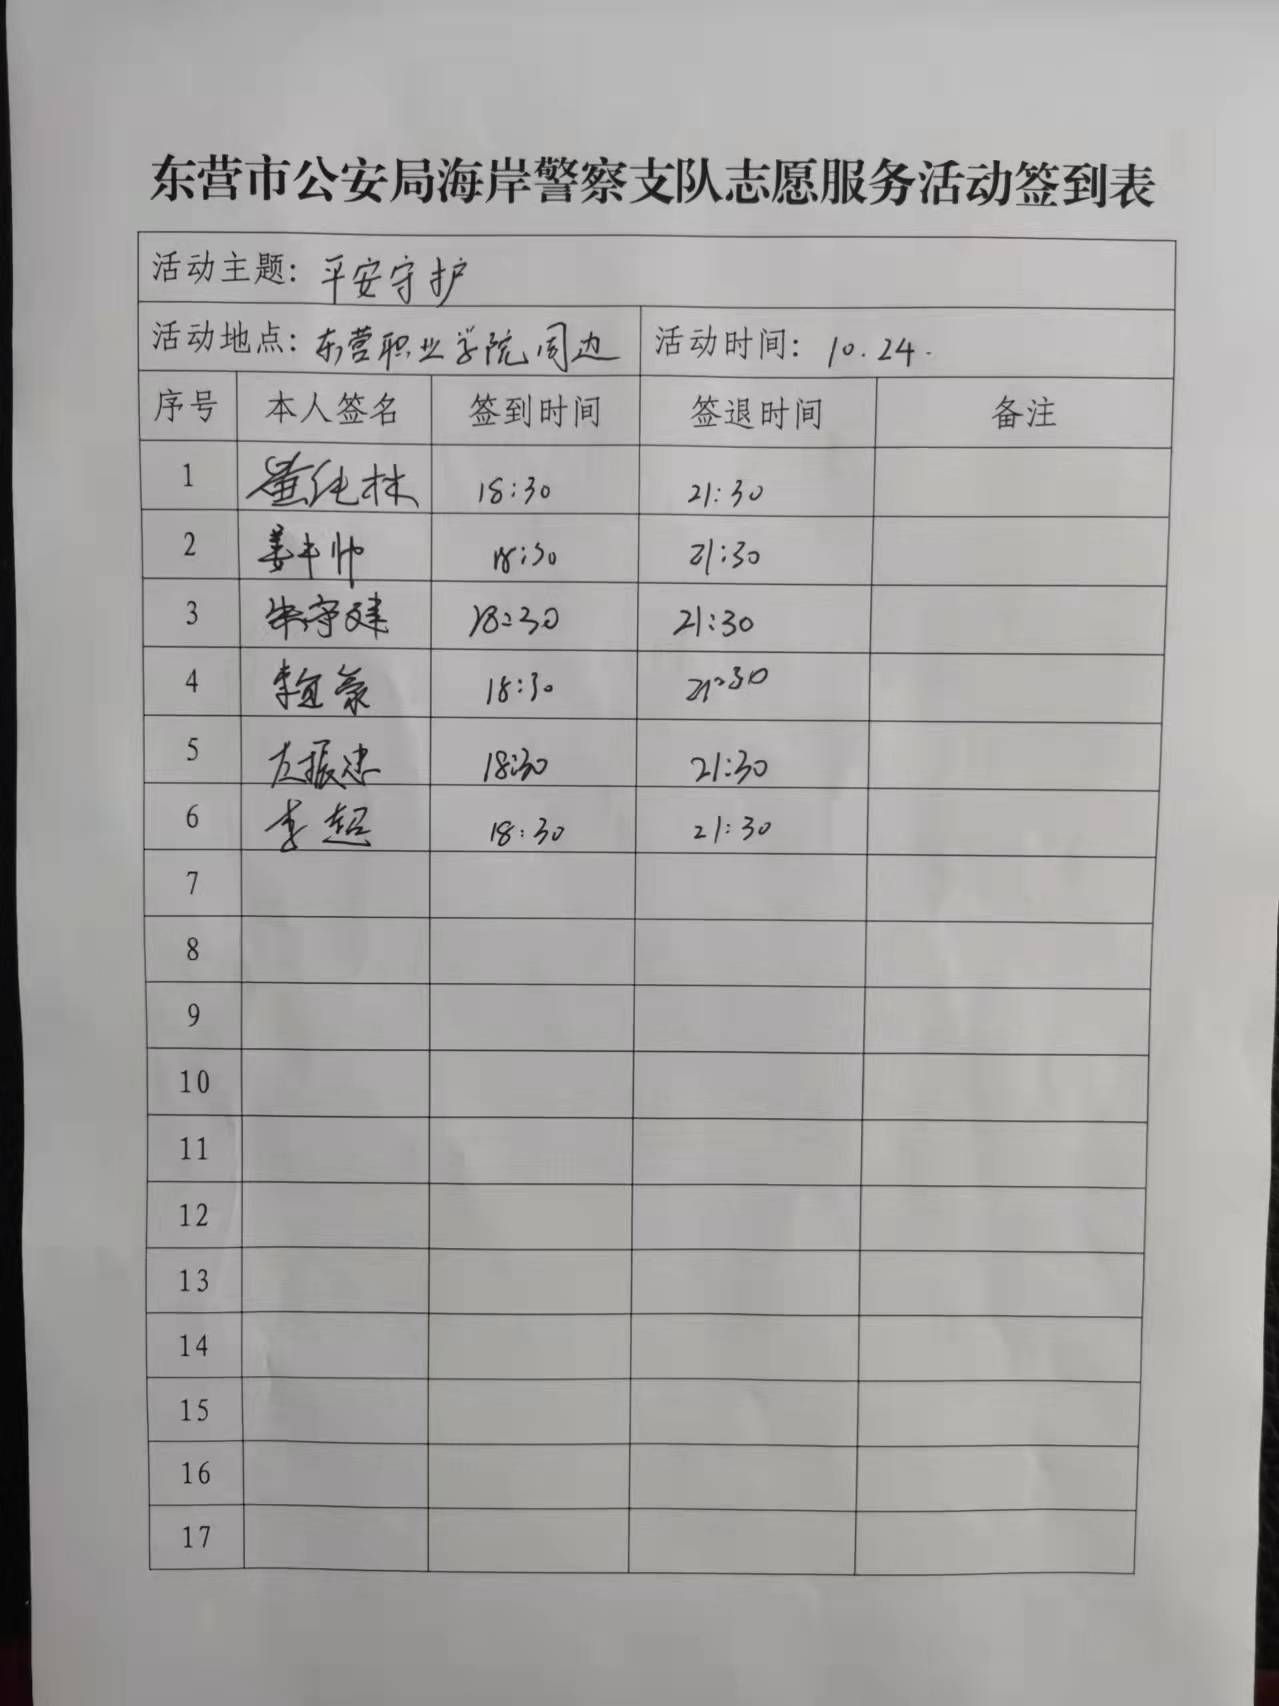 东营市公安局海岸警察支队志愿服务活动签到表
活动主题: 平安守护
活动地点: 东营职业学院周边 活动时间: 10.24.
序号 本人签名 签到时间 签退时间 备注
1 董纯林 18:30 21:30
2 姜丰帅 18:30 21:30
3 朱守建 18:30 21:30
4 李宜 18:30 21:30
5 左振忠 18:30 21:30
6 李超 18:30 21:30
7
8
9
10
11
12
13
14
15
16
17